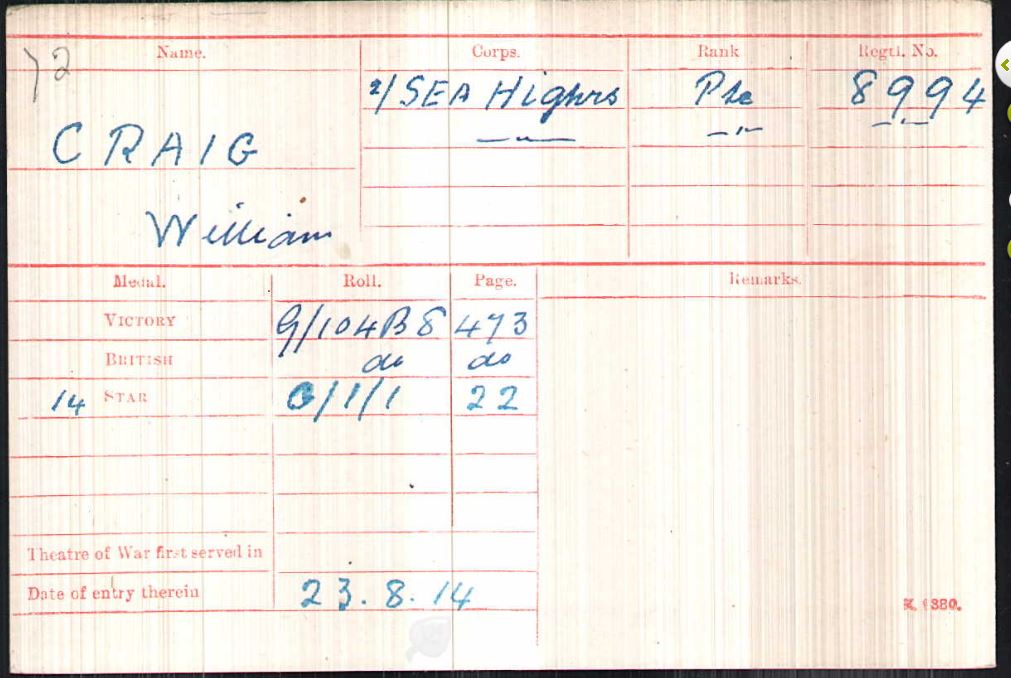 Name. Corps. Rank Regtl. No.
2/ SEA Highrs Pte 8994
CRAIG
William
Medal. Roll. Page. Remarks.
VICTORY G/104B8 473
BRITISH do do
14 STAR G/1/1 22
Theatre of War first served in
Date of entry therein 23.8.14
K. 1380.